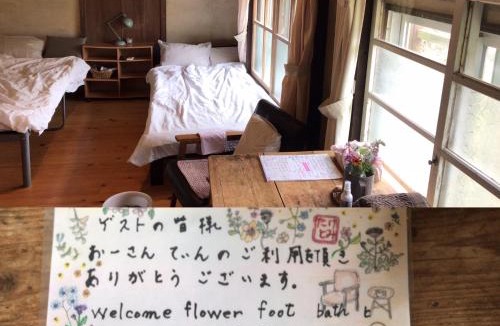 ゲストの皆様
おーさんてぃんのご利用を頂き
ありがとうございます。
welcome flower foot bath と